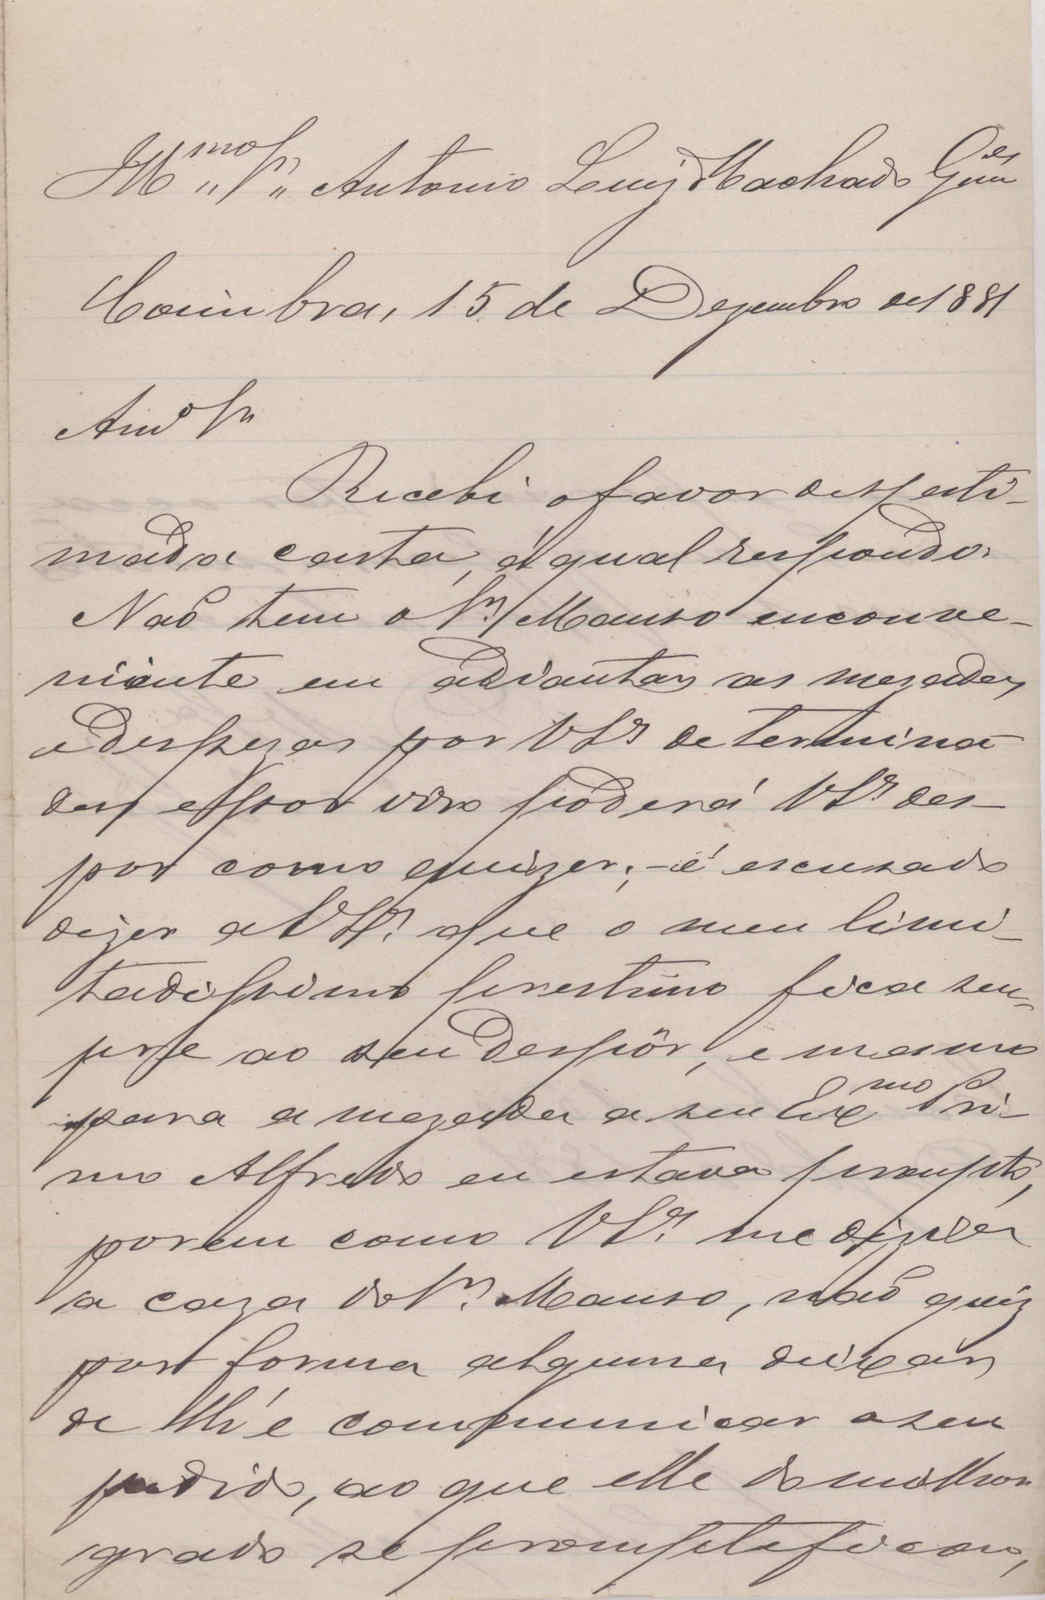 Illmo Sr. Antonio Luiz Machado Gues
Coimbra, 15 de Dezembro de 1881
Amo Sr
Recebi o favor de sf esti-
mada carta, á qual respondo.
Não tem o Sr. Manso enconve-
niente em adiantar as mezadas
e despezas por VSra determina-
das e por isso poderá VSra des-
por como quizer; - é escusado
dizer a VSra. que o meu limi-
tadissimo prestimo fica sem-
pre ao seu despôr, e mesmo
para a mezada a seu Exmo Pri-
mo Alfredo eu estava prompto,
porem como VSra. me dizia
a caza do Sr. Manso, não quiz
por forma alguma deixar
de lh'e communicar o seu
pedido, ao que elle do milhor
grado se prompteficou,